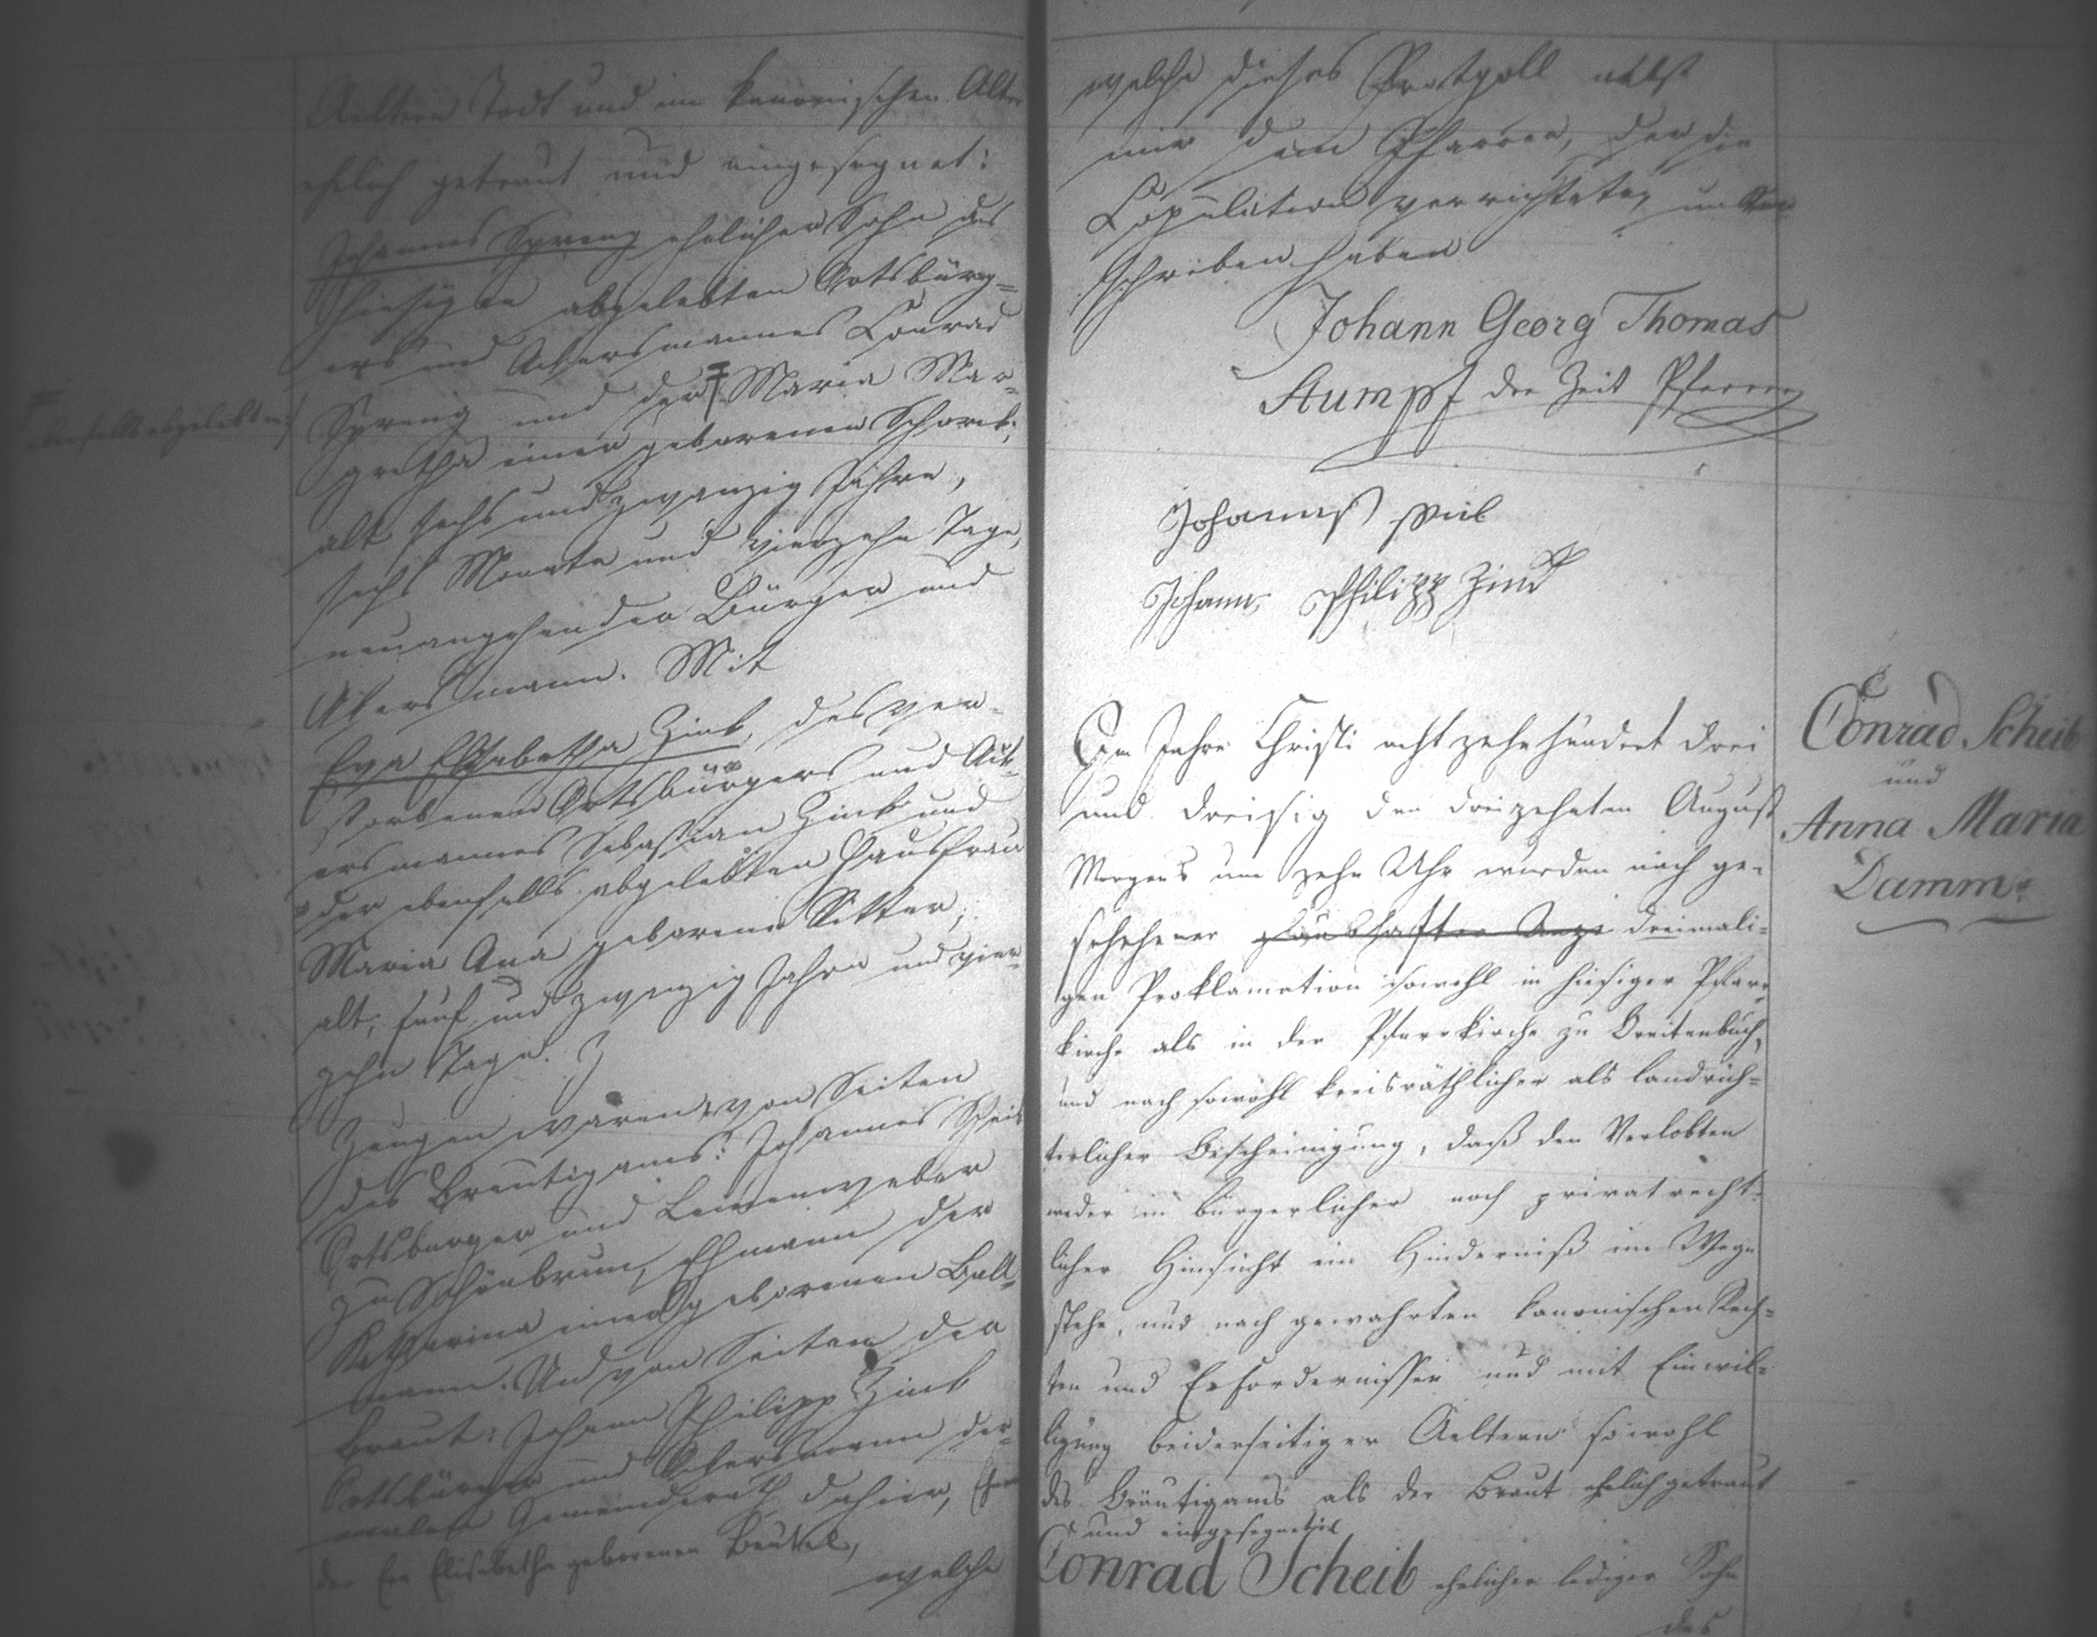 Aeltern Todt und im kanonischen Alter
ehelich getraut und eingesegnet:
Johannes Spreng ehelicher Sohn des
hiesigen abgelebten Ortsbürg=
ers und Ackersmannes Conrad
Spreng und der Maria Mar=
ebenfalls abgelebten
gretha einer geborenen Schork;
alt sechs und zwanzig Jahre,
sechs Monate und vierzehn Tage,
neuangehender Bürger und
Ackersmann. Mit
Eva Elisabetha Zink, des ver=
storbenen Ortsbürgers und Ack=
ersmannes Sebastian Zink und
der ebenfalls abgelebten Hausfrau
Maria Ana geborene Ritter,
alt, fünf und zwanzig Jahre und vier=
zehn Tage.
Zeugen waren von Seiten
des Bräutigams: Johannes
Ortsbürger und Leinenweber
zu Schönbrun, Ehmann der
Katharina einer geborenen Ball=
mann. Und von Seiten der
Braut: Johann Philipp Zink
Ortsbürger und Ackersmann der=
malen Gemeinderath dahier,
der Eva Elisabetha geborenen Beutel,
welche
welche dieses Protocoll nebst
mir dem Pfarrer, der die
Copulation verrichtete, unter
schrieben haben
Johann Georg Thomas
Stumpf der Zeit Pfarrer
Johannes
Johann Philipp Zink
Conrad Scheib
und
Anna Maria
Damm.
Im Jahre Christi achtzehnhundert drei
und dreisig den dreizehnten August
Morgens um zehn Uhr wurden nach ge=
schehener dreimali=
gen Proklamation sowohl in hiesiger Pfarr
kirche als in der Pfarrkirche zu Breitenbuch,
und nach sowohl kreisräthlicher als landrich=
terlicher Bescheinigung, daß den Verlobten
weder in bürgerlicher noch privatrecht=
licher Hinsicht ein Hinderniß im Wege
stehe, und nach gewahrten kanonischen Rech=
ten und Erfordernissen und mit Einwil=
ligung beiderseitiger Aeltern sowohl
des Bräutigams als der Braut ehelich getraut
und eingesegnet:
Conrad Scheib ehelicher lediger Sohn
des